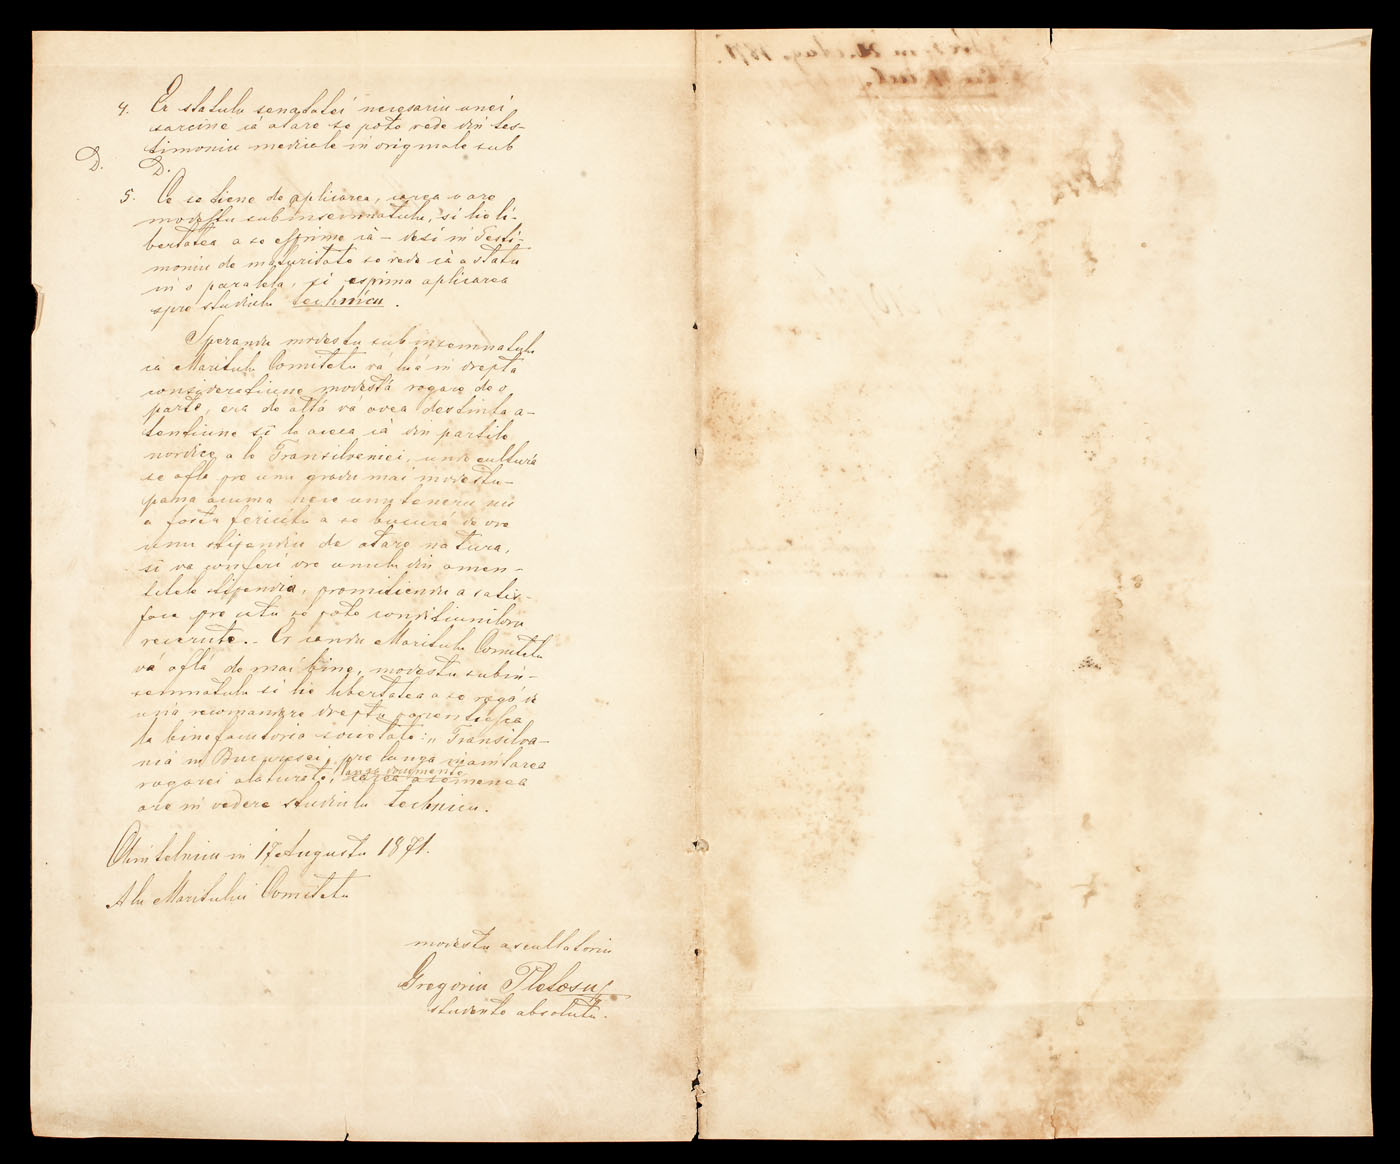 4. Er statulu senatatei necesariu unei
sarcine că atare se pote vede din tes-
timoniu medicale in originale sub
D. D.
5. Ce se tiene de aplicarea, carea o are
modestu subinsemnatulu, si lie li-
bertatea a se esprime că - desi in Testi-
moniu de maturitate se vede că a statu
in o paralela, si esprima aplicarea
spre studiulu technicu.
Sperandu modestu subinsemnatulu
că Maritulu Comitetu vá luá in drepta
consideratiune modestá rogare de o
parte, era de altá vá avea destinta a-
tentiune si la aceea că din partile
nordice a le Transilveniei, unde cultura
se afla pre unu gradu mai modestu -
pana acuma nece unu teneru nu
a fostu fericitu a se bucurá de vre
unu stipendiu de atare natura,
si va conferi vre unulu din amen-
titele stipendia, promitiendu a satis-
face pre catu se pote conditiuniloru
recerute. - Er candu Maritulu Comitetu
vá aflá de mai bine, modestu subin-
semnatulu si lie libertatea a se rogá de
una recomandare dreptu parentiesca
la binefacutoria societate: „Transilva-
nia in Bucuresci, pre langa inaintarea
rogarei alaturate, langa documente
carea asemenea
are in vedere studiulu technicu.
Chintelnicu in 17 Augustu 1871.
Alu Maritului Comitetu
modestu ascultatoriu
Gregoriu Pletosu
studente absolutu.